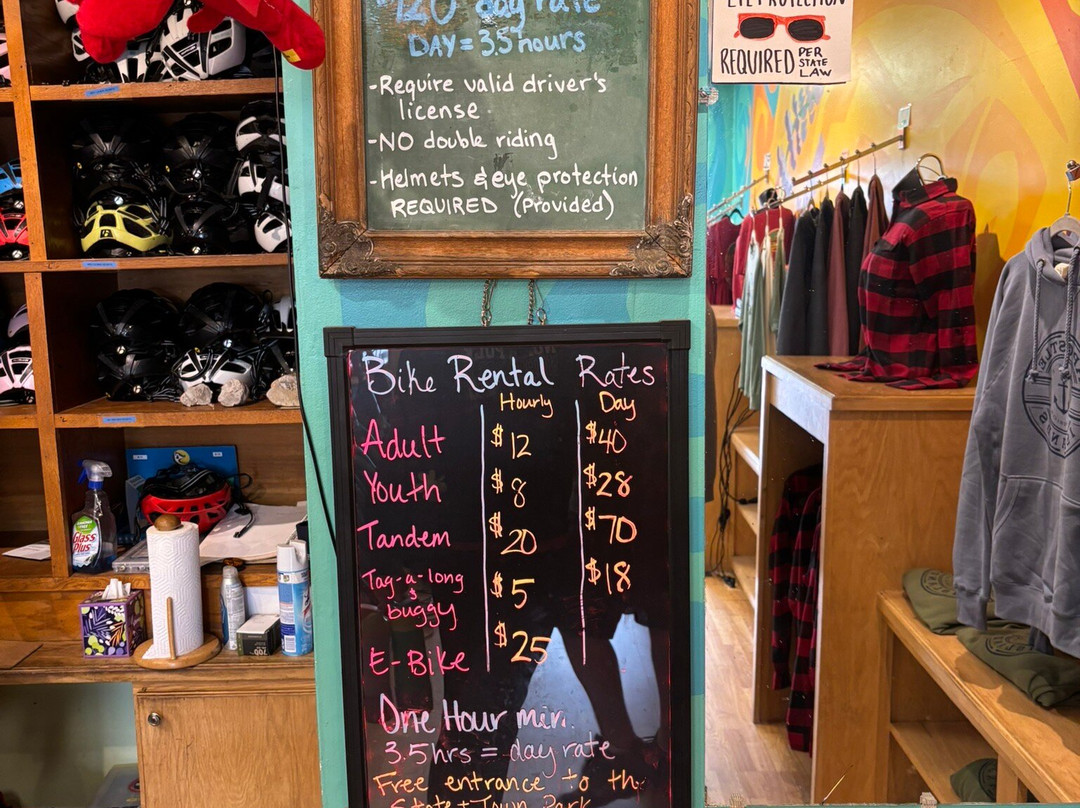 $120 day rate
DAY = 3.5 hours
-Require valid driver's
license.
-NO double riding
-Helmets & eye protection
REQUIRED (Provided)
EYE PROTECTION
REQUIRED PER
STATE
LAW
Bike Rental Rates
Hourly Day
Adult $12 $40
Youth $8 $28
Tandem $20 $70
Tag-a-long
&
buggy $5 $18
E-Bike $25
One Hour min.
3.5hrs = day rate
Free entrance to the
State + Town Park
Glass
Plus